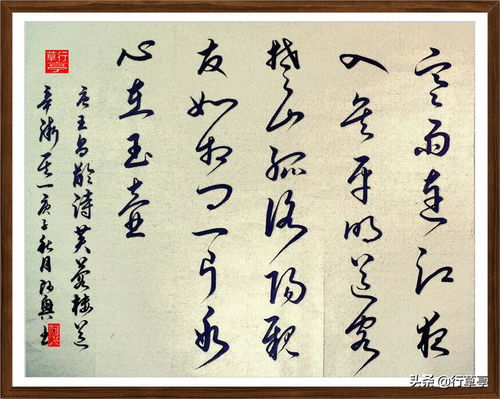 寒雨连江夜
入吴平明送客
楚山孤洛阳亲
友如相问一片冰
心在玉壶
唐王昌龄詩芙蓉楼送
辛渐其一庚子秋月
行草亭
头条 @行草亭